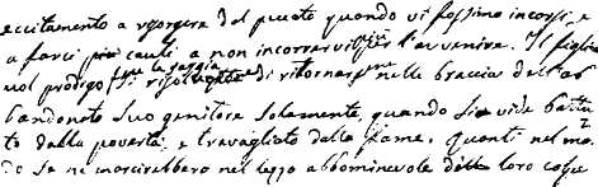 eccitamento a risorgere dal peccato quando vi fossimo incorsi, e
a farci più cauti a non incorrervi più per l'avvenire. Il figliu
uol prodigo fu sì saggia di ritornarsene nelle braccia dell'ab
bandonato suo genitore solamente, quando si vide battu
to dalla povertà, e travagliato dalla fame. Quanti nel mon
do se ne marcirebbero nel lezzo abbominevole delle loro colpe